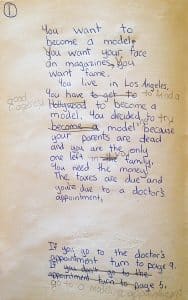 1
You want to
become a model,
you want your face
on magazines, you
want fame.
You live in Los Angeles,
You have to get to to find a
good
Hollywood to become a
model. You decided to try
become a model because
your parents are dead
and you are the only
one left in family.
You need the money!
The taxes are due and
you're due to a doctor's
appointment.
If you go to the doctor's
appointment turn to page 9.
If you don't go to the
appointment turn to page 5.
go to a